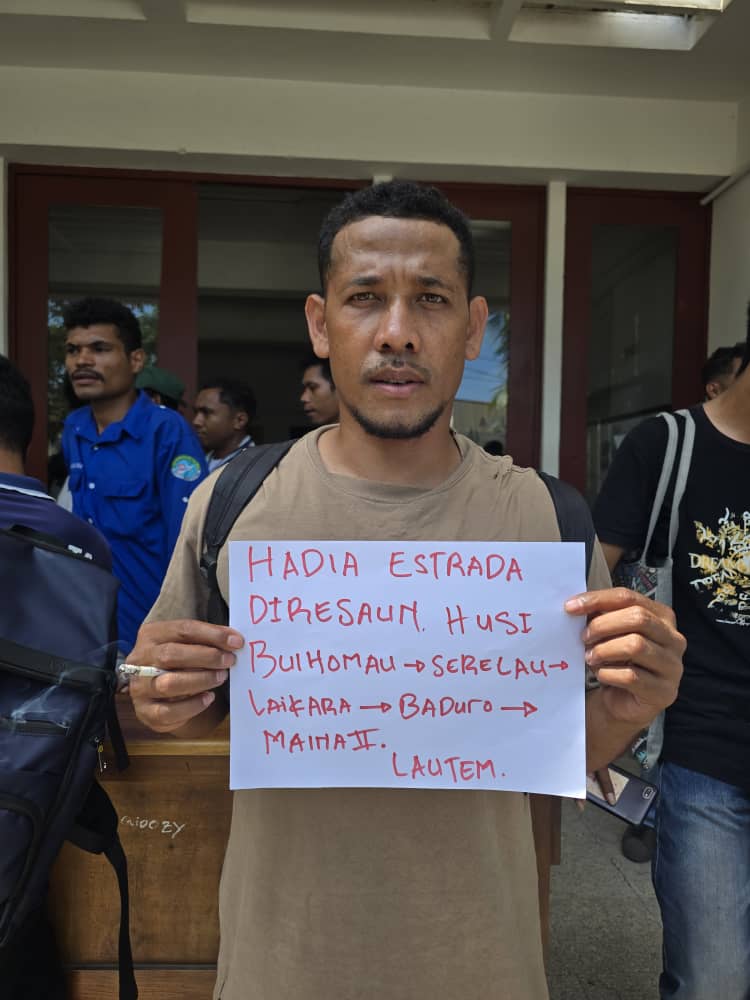 HADIA ESTRADA
DIRESAUN. HUSI
BUIHOMAU → SERELAU →
LAIKARA → BADURO →
MAINA II.
LAUTEM.
DREAM